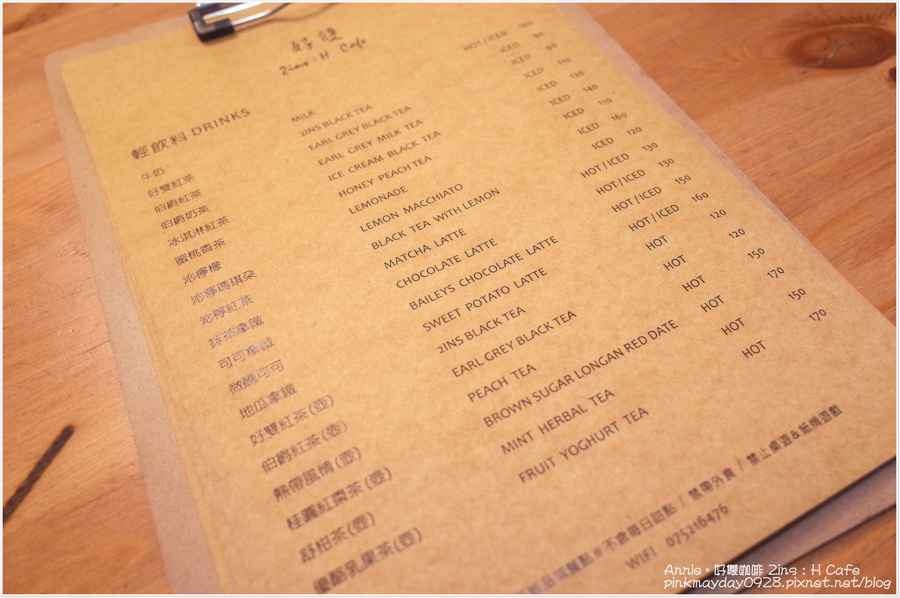 好雙
2ins : H Cafe
輕飲料 DRINKS
牛奶 MILK HOT / ICED
好雙紅茶 2INS BLACK TEA ICED 90
伯爵紅茶 EARL GREY BLACK TEA ICED 90
伯爵奶茶 EARL GREY MILK TEA ICED 110
冰淇淋紅茶 ICE CREAM BLACK TEA ICED 120
蜜桃香茶 HONEY PEACH TEA ICED 140
沁檸檬 LEMONADE ICED 110
沁檸瑪琪朵 LEMON MACCHIATO ICED 160
沁檸紅茶 BLACK TEA WITH LEMON ICED 120
抹茶拿鐵 MATCHA LATTE HOT / ICED 130
可可拿鐵 CHOCOLATE LATTE HOT / ICED 130
微醺可可 BAILEYS CHOCOLATE LATTE HOT / ICED 150
地瓜拿鐵 SWEET POTATO LATTE HOT / ICED 160
好雙紅茶(壺) 2INS BLACK TEA HOT 120
伯爵紅茶(壺) EARL GREY BLACK TEA HOT 120
熱帶風情(壺) PEACH TEA HOT 150
桂圓紅棗茶(壺) BROWN SUGAR LONGAN RED DATE HOT 170
舒柑茶(壺) MINT HERBAL TEA HOT 150
優酪乳果茶(壺) FRUIT YOGHURT TEA HOT 170
不含每日甜點 / 禁帶外食 / 禁止桌遊&紙牌遊戲
WIFI 075216476
Annie。好雙咖啡 2ins : H Cafe
pinkmayday0928.pixnet.net/blog